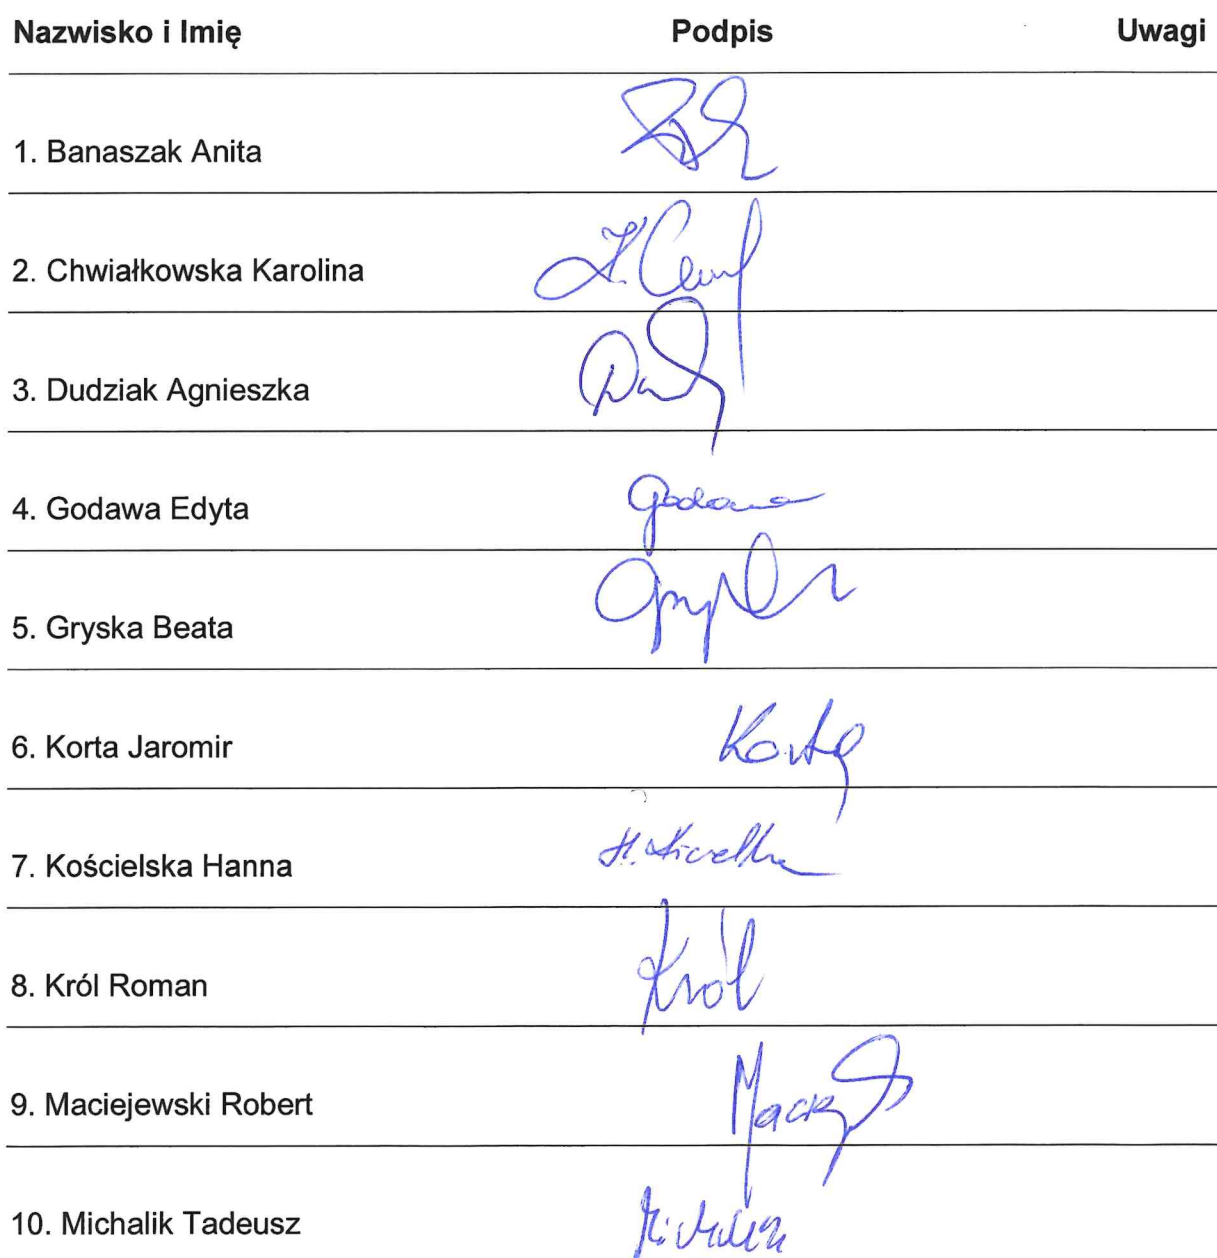 Nazwisko i Imię Podpis Uwagi
1. Banaszak Anita
2. Chwiałkowska Karolina
3. Dudziak Agnieszka
4. Godawa Edyta Godawa
5. Gryska Beata
6. Korta Jaromir Korta
7. Kościelska Hanna
8. Król Roman Król
9. Maciejewski Robert
10. Michalik Tadeusz Michalik